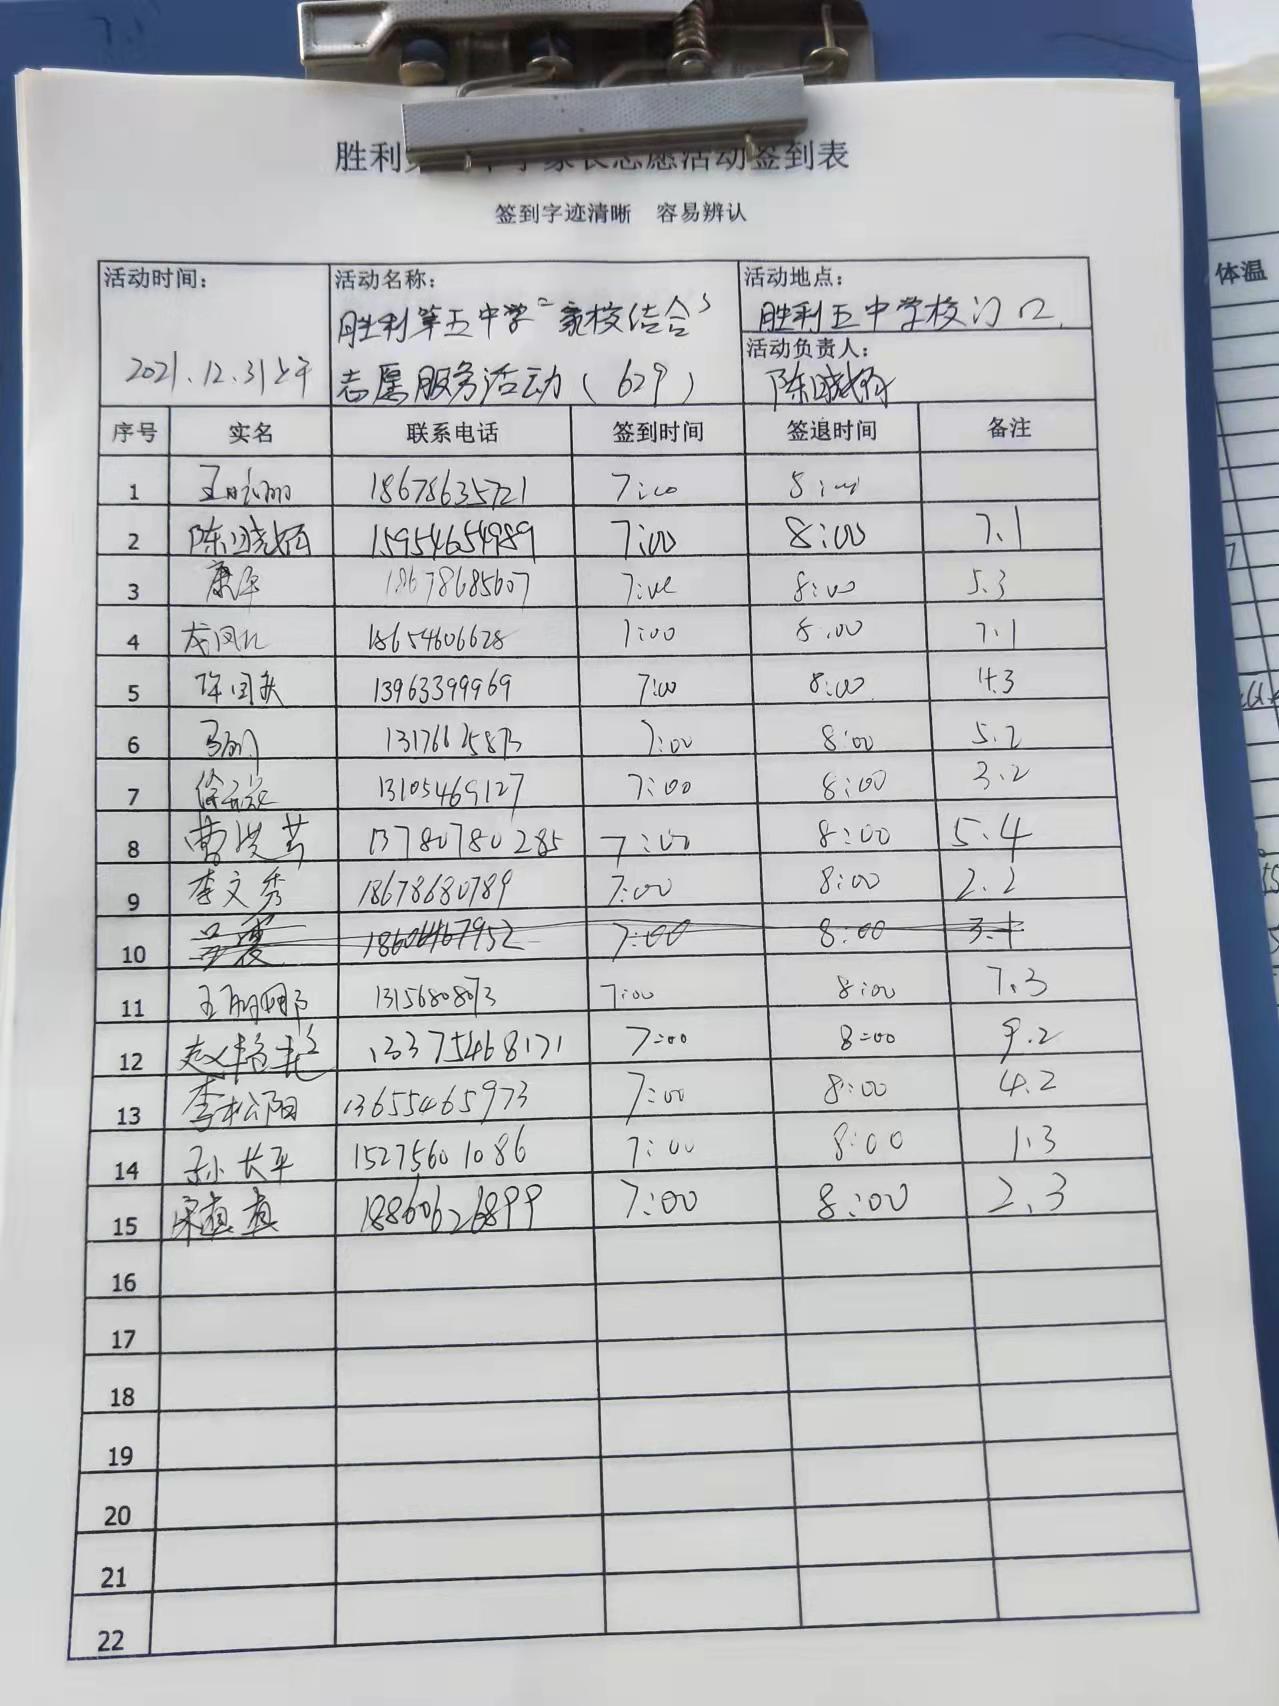 胜利 家长志愿活动签到表
签到字迹清晰 容易辨认
活动时间: 2021.12.31上午
活动名称: 胜利第五中学"家校结合"
志愿服务活动(629)
活动地点:
胜利五中学校门口
活动负责人:
陈晓娇
序号 实名 联系电话 签到时间 签退时间 备注
1 18678635721 7:00 8:00
2 陈晓娇 15954654989 7:00 8:00 7.1
3 康华 18678685607 7:00 8:00 5.3
4 18654606628 7:00 8:00 7.1
5 13963399969 7:00 8:00 4.3
6 7:00 8:00 5.2
7 13105469127 7:00 8:00 3.2
8 曹洪芳 13780780285 7:00 8:00 5.4
9 李文秀 18678680789 7:00 8:00 2.2
10 18606467952 7:00 8:00 3.1
11 7:00 8:00 7.3
12 13375468171 7:00 8:00 9.2
13 李松阳 13655465973 7:00 8:00 4.2
14 孙长平 15275601086 7:00 8:00 1.3
15 宋真真 18860626899 7:00 8:00 2.3
16
17
18
19
20
21
22
体温